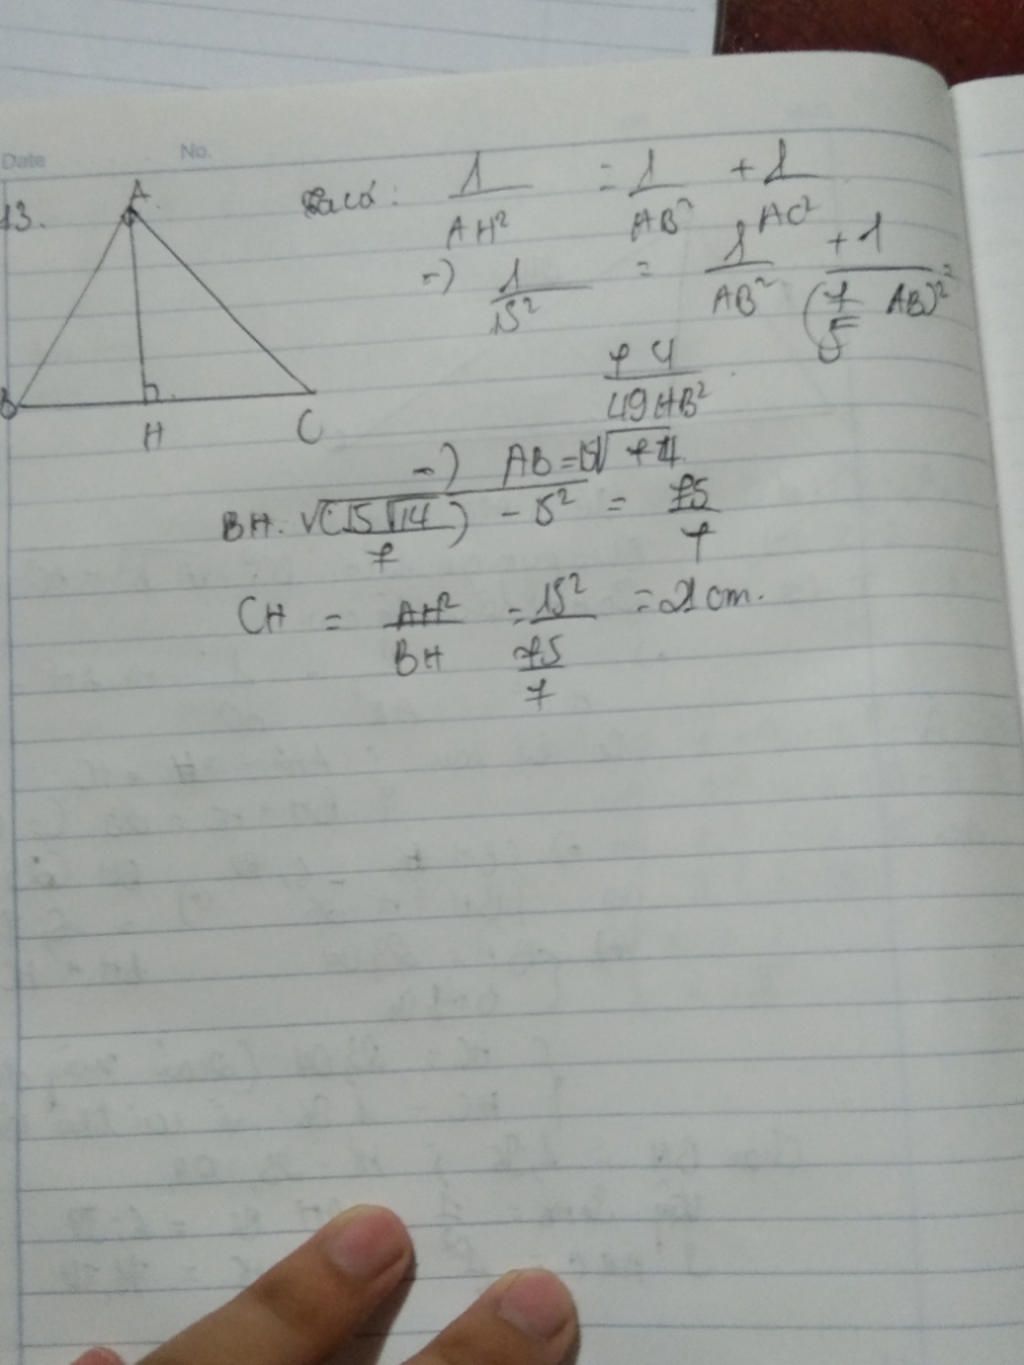 Date No.
13.
A
B
H
C
Ta có: 1/AH² = 1/AB² + 1/AC²
→) 1/15² = 1/AB² + 1/(7/5 AB)² =
74/49AB²
→) AB = 15√74
BH. √(15√14/7) - 15² = 75/7
CH = AH²/BH = 15²/(75/7) = 21 cm.